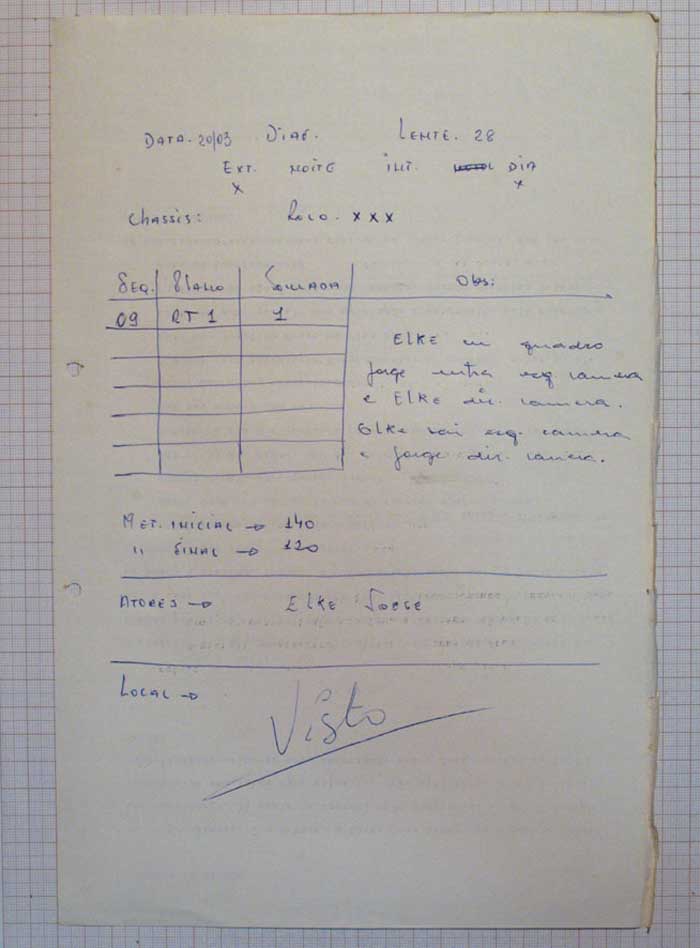 DATA. 20/03 DIAF. LENTE. 28
EXT. NOITE INT. DIA
x x
Chassis: Rolo. x x x
SEQ. PLANO TOMADA Obs:
09 RT 1 1
ELKE em quadro
Jorge entra esq câmera
e ELKE dir. camera.
Elke sai esq. camera
e Jorge dir. camera.
MET. INICIAL → 140
" FINAL → 120
ATORES → ELKE JORGE
LOCAL →
Visto